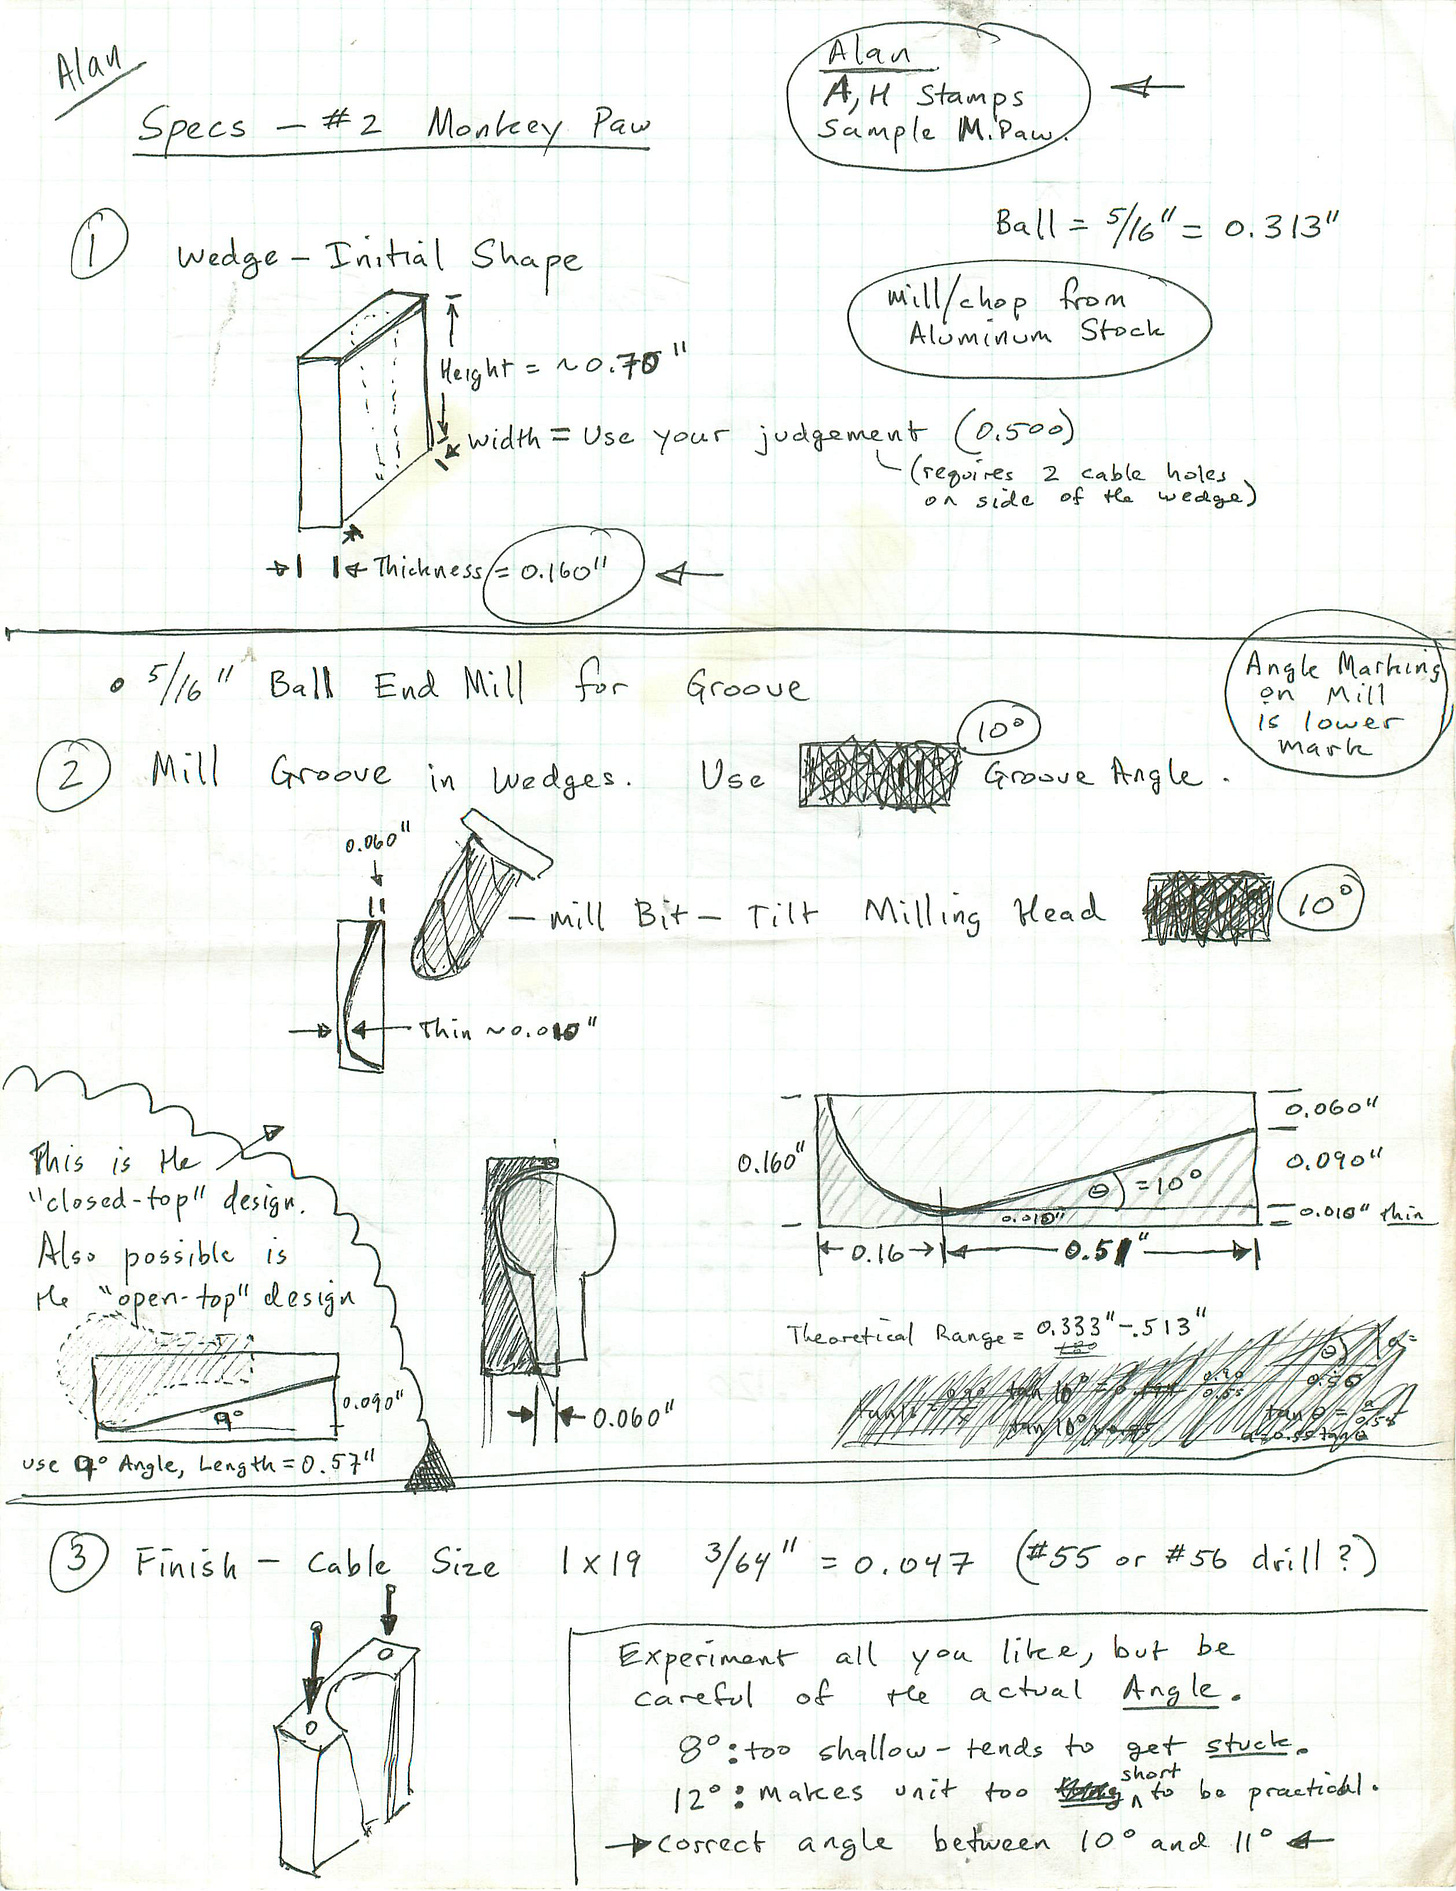 Alan
Alan
A, H Stamps
Sample M. Paw.
Specs – #2 Monkey Paw
Ball = 5/16" = 0.313"
1 Wedge – Initial Shape
Mill/chop from
Aluminum Stock
Height = ~0.70"
Width = Use your judgement (0.500)
(requires 2 cable holes
on side of the wedge)
Thickness = 0.160"
• 5/16" Ball End Mill for Groove
Angle Marking
on Mill
is lower
mark
2 Mill Groove in Wedges. Use 10° Groove Angle.
0.060"
Mill Bit – Tilt Milling Head 10°
Thin ~0.010"
This is the
"closed-top" design.
Also possible is
the "open-top" design
9°
0.090"
use 9° Angle, Length = 0.57"
0.060"
0.160"
0.060"
0.090"
θ = 10°
0.010"
0.010" thin
0.16
0.51"
Theoretical Range = 0.333" – .513"
tan 10°
tan θ =
3 Finish – Cable Size 1x19 3/64" = 0.047 (#55 or #56 drill?)
Experiment all you like, but be
careful of the actual Angle.
8°: too shallow – tends to get stuck.
12°: makes unit too short to be practical.
→ correct angle between 10° and 11° ←